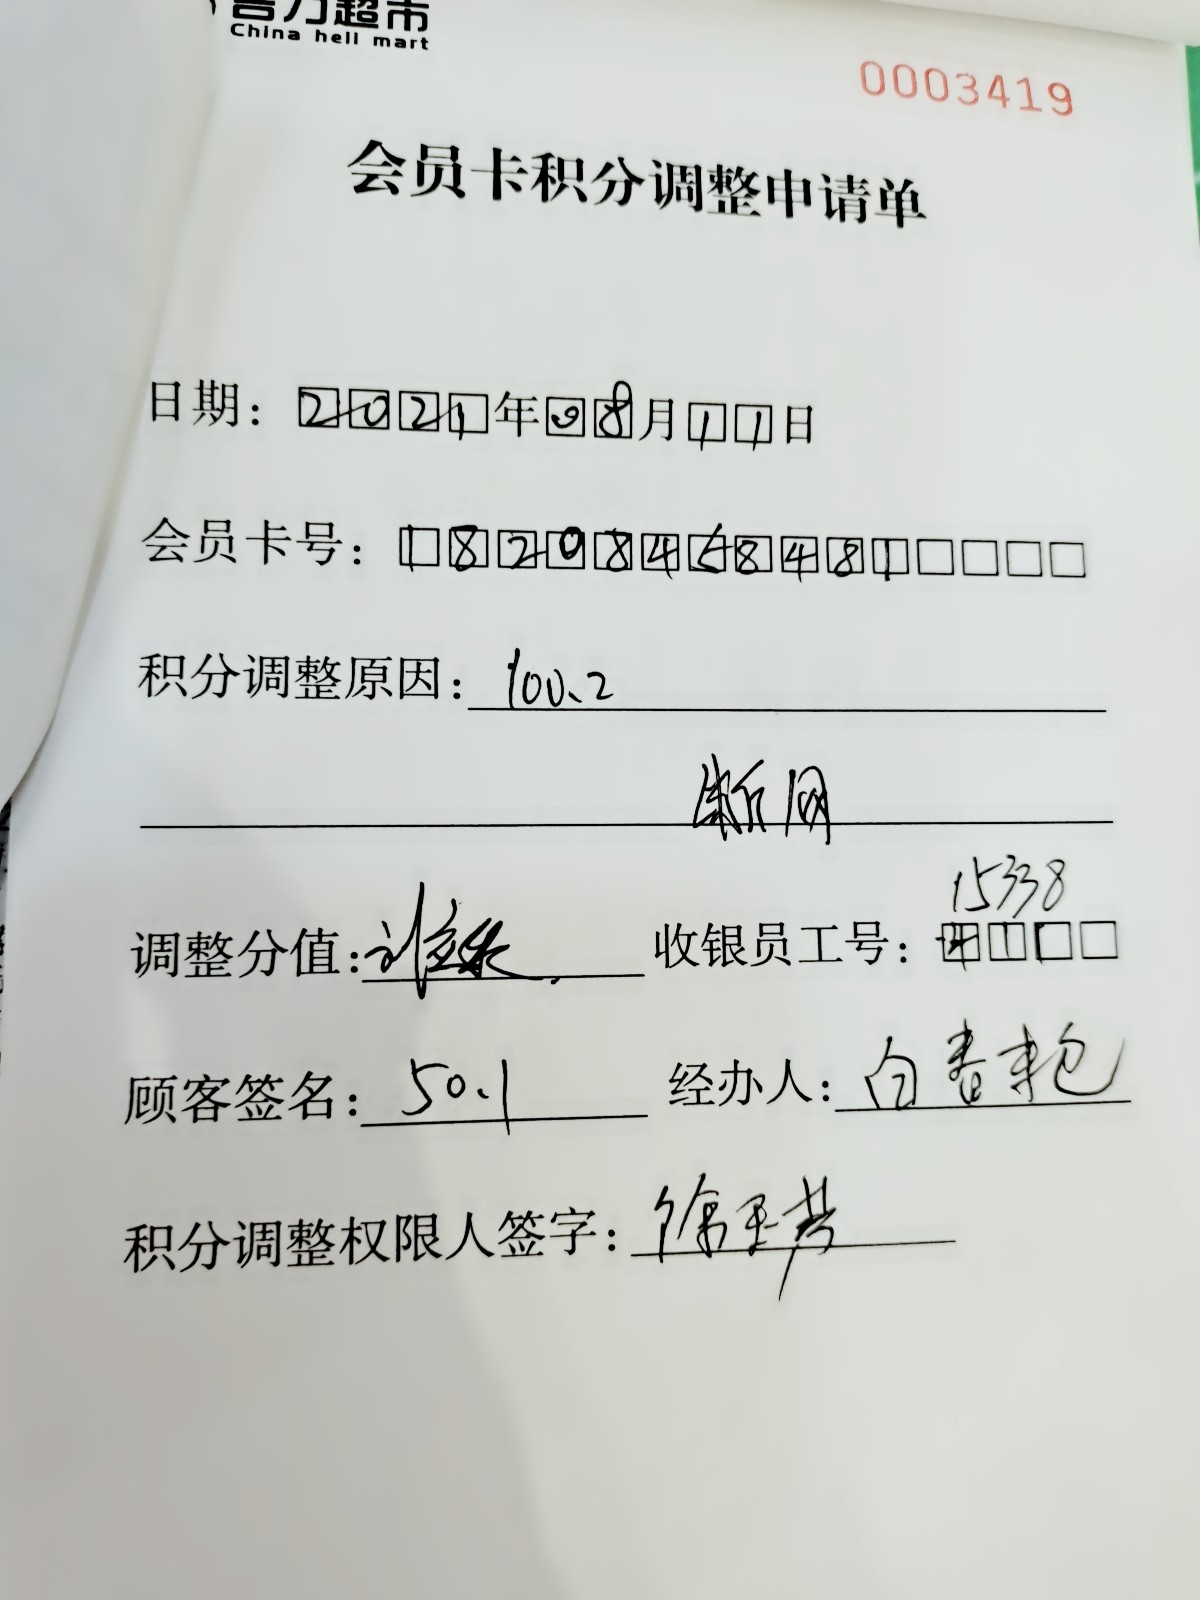 超市
China hell mart
0003419
会员卡积分调整申请单
日期：2021年08月11日
会员卡号：18208458481
积分调整原因：100.2
断网
调整分值： 收银员工号：15338
顾客签名：50.1 经办人：白春艳
积分调整权限人签字：徐